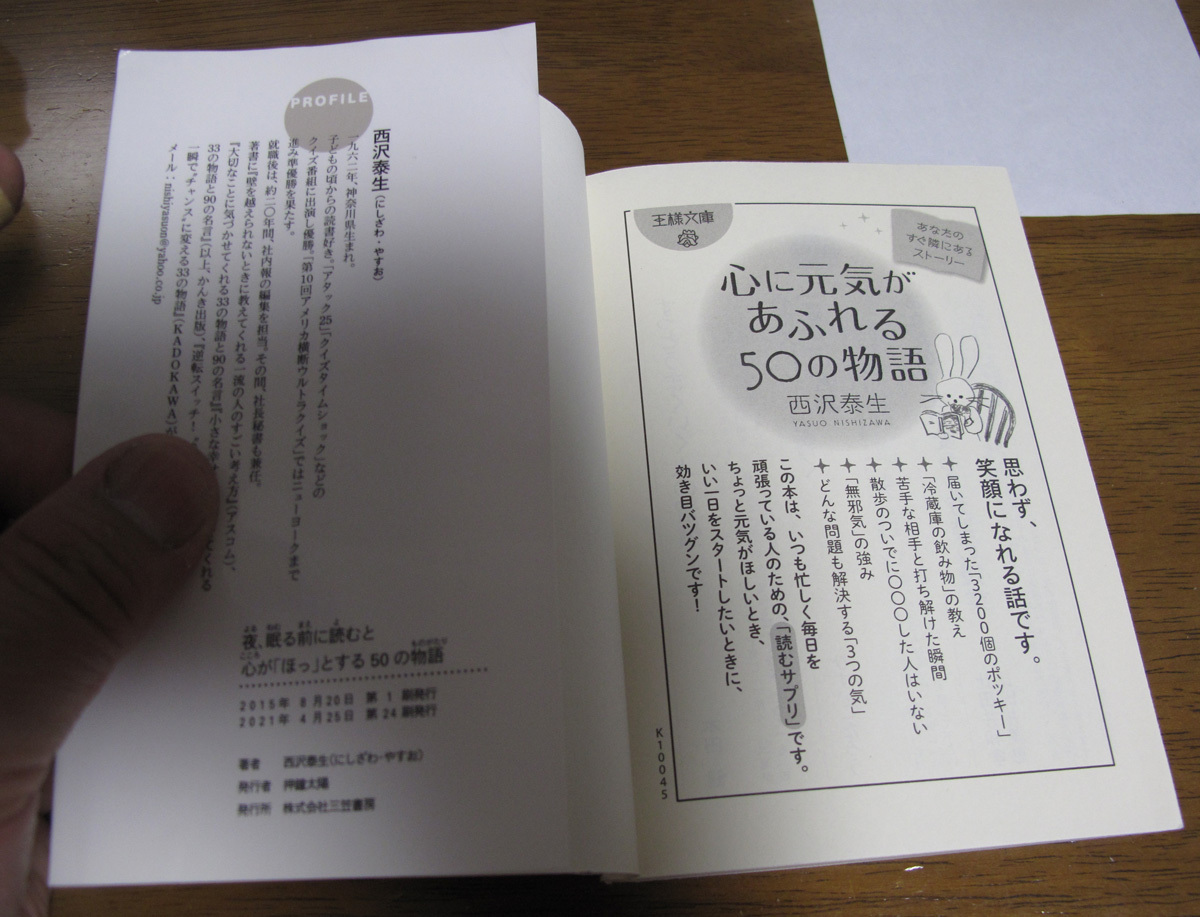 PROFILE
西沢泰生(にしざわ・やすお)
一九六二年、神奈川県生まれ。
子どもの頃からの読書好き。『アタック25』『クイズタイムショック』などの
クイズ番組に出演し優勝。『第10回アメリカ横断ウルトラクイズ』ではニューヨークまで
進み準優勝を果たす。
就職後は、約二〇年間、社内報の編集を担当。その間、社長秘書も兼任。
著書に『壁を越えられないときに教えてくれる一流の人のすごい考え方』(アスコム)、
『大切なことに気づかせてくれる33の物語と90の名言』『小さな幸せ
てくれる
33の物語と90の名言』(以上、かんき出版)、『逆転スイッチ!
一瞬で“チャンス”に変える33の物語』(KADOKAWA)が
メール:nishiyasuom@yahoo.co.jp
よる ねむ まえ よ
夜、眠る前に読むと
こころ ものがたり
心が「ほっ」とする50の物語
2015年 8月20日 第1刷発行
2021年 4月25日 第24刷発行
著者 西沢泰生(にしざわ・やすお)
発行者 押鐘太陽
発行所 株式会社三笠書房
王様文庫
あなたの
すぐ隣にある
ストーリー
心に元気が
あふれる
50の物語
西沢泰生
YASUO NISHIZAWA
思わず、
笑顔になれる話です。
届いてしまった「3200個のポッキー」
「冷蔵庫の飲み物」の教え
苦手な相手と打ち解けた瞬間
散歩のついでに〇〇〇した人はいない
「無邪気」の強み
どんな問題も解決する「3つの気」
この本は、いつも忙しく毎日を
頑張っている人のための、「読むサプリ」です。
ちょっと元気がほしいとき、
いい一日をスタートしたいときに、
効き目バツグンです!
K10045